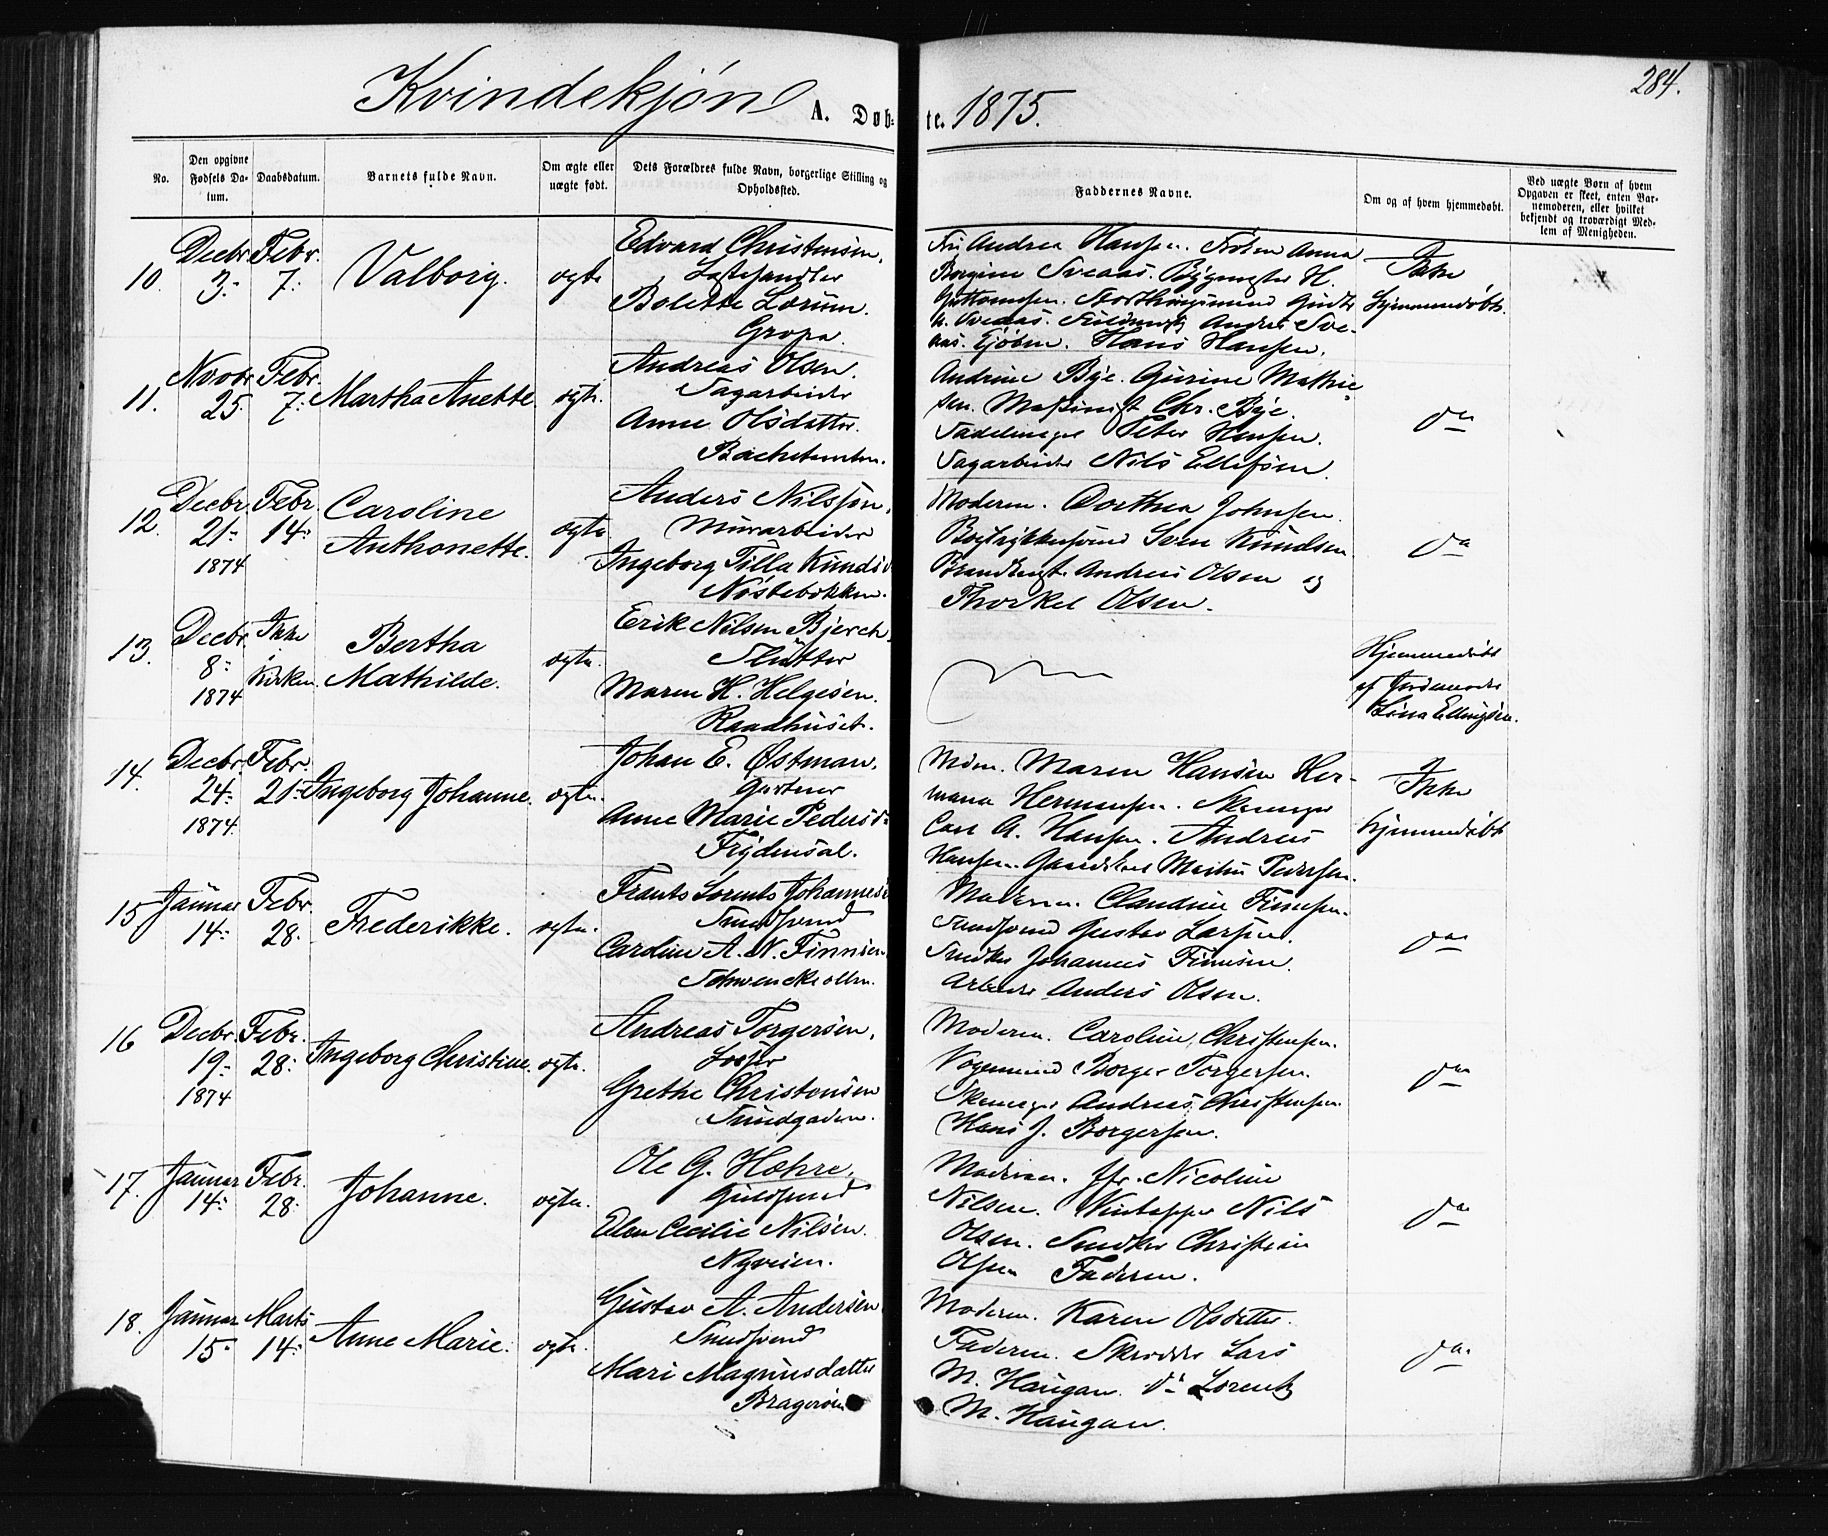 284.
Kvindekjøn A. Døb- te. 1875.
No.
Den opgivne Fødsels Da-
tum.
Daabsdatum.
Barnets fulde Navn.
Om ægte eller
uægte født.
Dets Forældres fulde Navn, borgerlige Stilling og
Opholdssted.
Faddernes Navne.
Om og af hvem hjemmedøbt.
Ved uægte Børn af hvem
Opgaven er skeet, enten Bar-
nemoderen, eller hvilket
bekjendt og troværdigt Med-
lem af Menigheden.
10. Decbr. 3. Febr. 7. Valborg. ægte
Edvard Christensen,
Bolette Lorum.
Gropa.
Andrea Hansen. Frøken Anna
Borgine Sveaas. H.
Guttormsen. Storthingsmand
Sveaas. Andreas Sve-
aas. Hans Hansen.
Ikke
hjemmedøbt.
11. Novbr. 25. Febr. 7. Martha Anette ægte.
Andreas Olsen.
Sagarbeider
Anne Olsdatter.
Andrine Bye. Gurine Mathie-
sen. Maskinist Chr. Bye.
Sadelmager Peter Hansen.
Sagarbeider Nils Ellefsen.
do
12. Decbr. 21. 1874 Febr. 14. Caroline
Anthonette. ægte
Anders Nilssøn,
Murarbeider
Ingeborg Tilla Knudsd.
Nøstebækken.
Moderen. Dorthea Johnsen.
Bogtrykkersvend Sven Knudsen
Andreas Olsen og
Thorkel Olsen.
do
13. Decbr. 8. 1874 Ikke i Kirken. Bertha
Mathilde. ægte.
Erik Nilsen Bjerch.
Slutter
Maren H. Helgesen.
Raadhuset.
Hjemmedøbt
af Jordemoder
Lina Ellingsen.
14. Decbr. 24. 1874 Febr. 21. Ingeborg Johanne. ægte.
Johan E. Østman,
Gartner
Anne Marie Pedersd.
Frydensal.
Mdm. Maren Hansen Her-
mana Hermansen. Skomager
Carl A. Hansen. Andreas
Hansen. Gaardskarl Martin Pedersen.
Ikke
hjemmedøbt
15. Januar 14. Febr. 28. Frederikke. ægte.
Frants Lorents Johannes
Smedsvend
Caroline A. N. Finnsen
Schwenckeolken.
Moderen. Claudine Finnsen.
Smedsvend Gustav Larsen.
Snedker Johannes Finnsen.
Arbeider Anders Olsen.
do
16 Decbr. 19. 1874 Febr. 28. Ingeborg Christine. ægte.
Andreas Torgersen,
Grethe Christensen
Smedgaden.
Moderen. Caroline Christensen.
Vognmand Borger Torgersen.
Skomager Andreas Christensen.
Hans J. Borgersen.
do
17. Januar 14. Febr. 28. Johanne. ægte.
Ole G. Hæhre,
Guldsvend
Elen Cecilie Nilsen.
Nyveien.
Moderen. Jfr. Nicoline
Nilsen. Vintapper Nils
Olsen. Snedker Christian
Olsen Faderen.
do
18. Januar 15. Marts 14. Anne Marie. ægte.
Gustav A. Andersen
Smedsvend
Mari Magnusdatter
Bragerøen
Moderen. Karen Olsdatter.
Faderen. Skrædder Lars
M. Haugan. do Lorentz
M. Haugan.
do